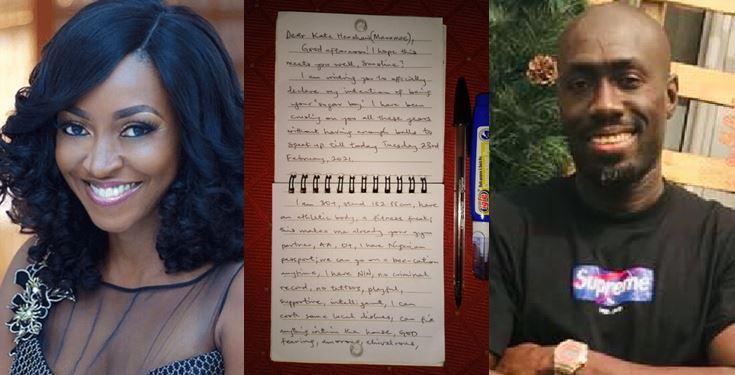 Dear Kate Henshaw (Mammoe),
Good afternoon! I hope this
meets you well, Sunshine!
I am writing you to specially
declare my intention of being
your 'sugar boy'. I have been
crushing on you all these years
without having enough balls to
speak up till today Tuesday 23rd
February, 2021.
I am 30+, stand 182.88cm, have
an athletic body, a fitness freak;
this makes me already your gym
partner, AA, O+, I have Nigerian
passport; we can go on a bae-cation
anytime, I have NIN, no criminal
record, no tattoos, playful,
supportive, intelligent, I can
cook some local dishes, can fix
anything within the house, GOD
fearing, amorous, chivalrous,
Supreme